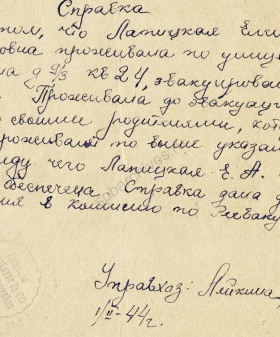 Справка
том, что Лапицкая Ели
овна проживала по улице
на д 9/3 кв 24, эвакуирова
Проживала до эвакуаци
со своими родителями, кот
проживали по выше указан
виду чего Лапицкая Е. А.
обеспечена. Справка дана д
ия в комиссию по Реэваку
Управхоз: Лейкина
1/II-44г.